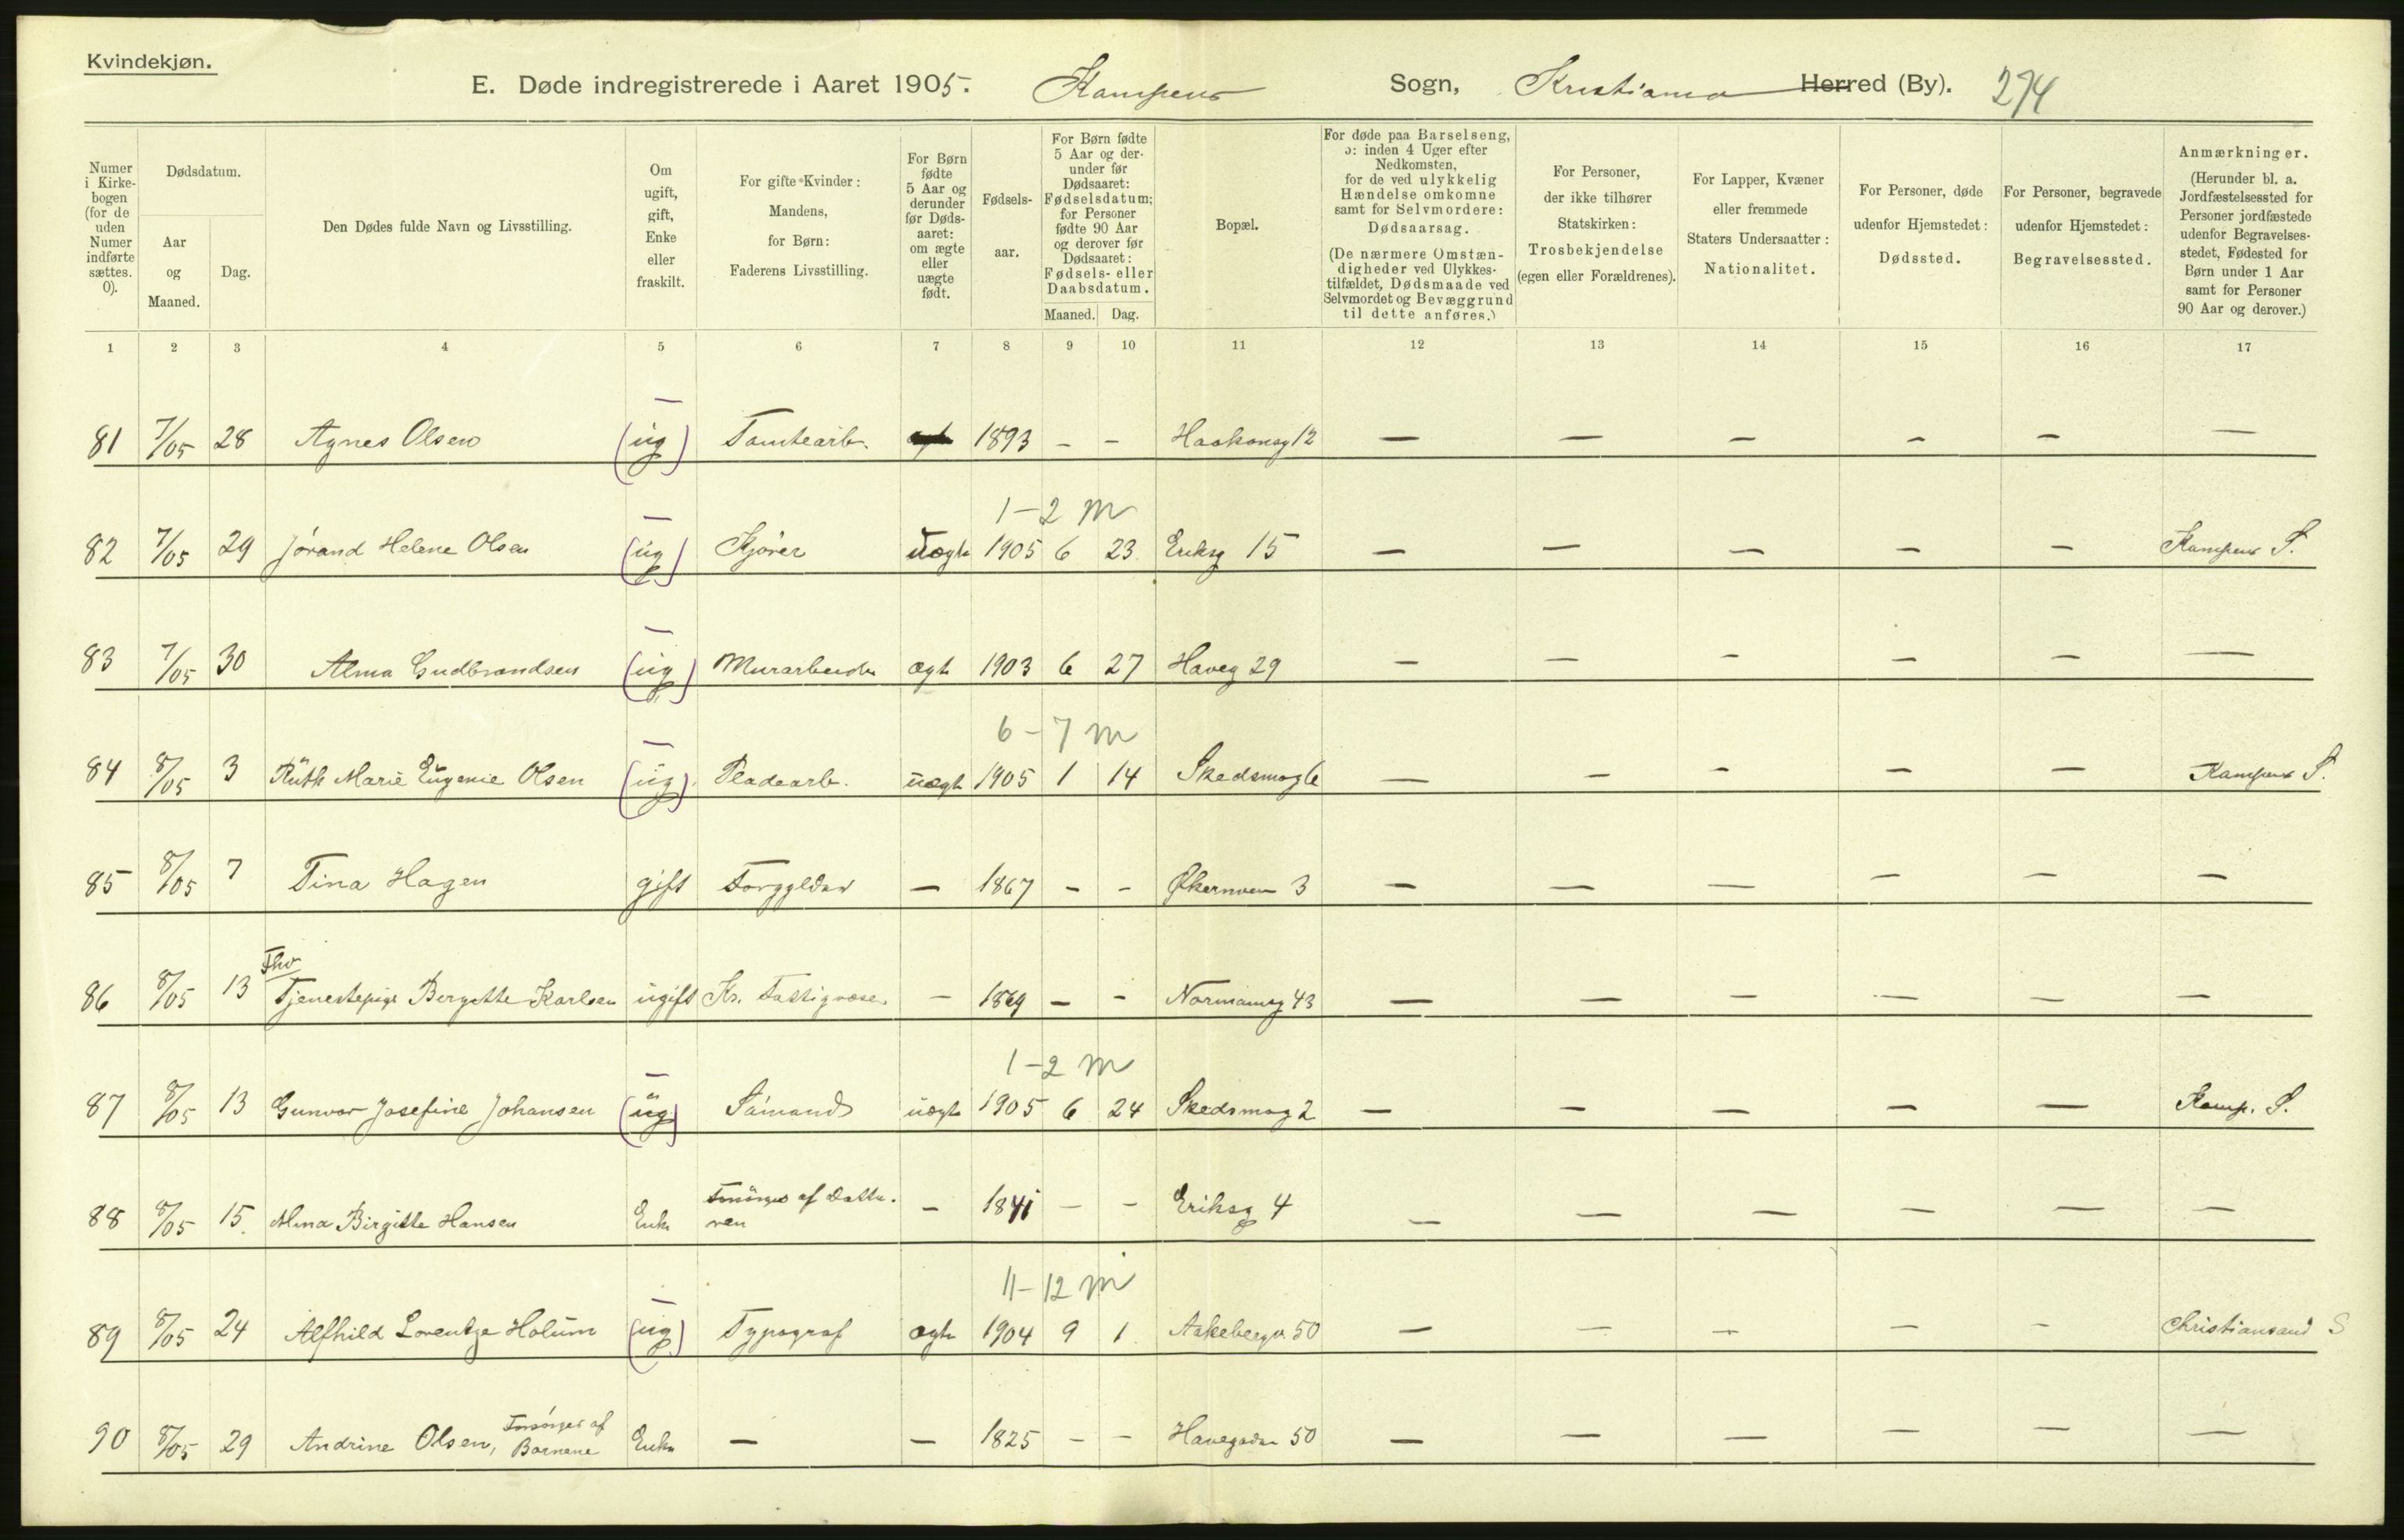 Kvindekjøn.
E. Døde indregistrerede i Aaret 1905. Kampens Sogn, Kristiania Herred (By). 274
Numer i Kirkebogen (for de uden Numer indførte sættes. 0).
Dødsdatum.
Aar og Maaned.
Dag.
Den Dødes fulde Navn og Livsstilling.
Om ugift, gift, Enke eller fraskilt.
For gifte Kvinder: Mandens, for Børn: Faderens Livsstilling.
For Børn fødte 5 Aar og derunder før Dødsaaret: om ægte eller uægte født.
Fødselsaar.
For Børn fødte 5 Aar og derunder før Dødsaaret: Fødselsdatum; for Personer fødte 90 Aar og derover før Dødsaaret: Fødsels- eller Daabsdatum.
Maaned. Dag.
Bopæl.
For døde paa Barselseng, ɔ: inden 4 Uger efter Nedkomsten, for de ved ulykkelig Hændelse omkomne samt for Selvmordere: Dødsaarsag.
(De nærmere Omstændigheder ved Ulykkestilfældet, Dødsmaade ved Selvmordet og Bevæggrund til dette anføres.)
For Personer, der ikke tilhører Statskirken: Trosbekjendelse (egen eller Forældrenes).
For Lapper, Kvæner eller fremmede Staters Undersaatter: Nationalitet.
For Personer, døde udenfor Hjemstedet: Dødssted.
For Personer, begravede udenfor Hjemstedet: Begravelsessted.
Anmærkninger. (Herunder bl. a. Jordfæstelsessted for Personer jordfæstede udenfor Begravelsesstedet, Fødested for Børn under 1 Aar samt for Personer 90 Aar og derover.)
1 2 3 4 5 6 7 8 9 10 11 12 13 14 15 16 17
81 7/05 28 Agnes Olsen (ug) Tomtearb. 1893 - - Haakonsg 12 - - - - - -
1-2 m
82 7/05 29 Jórand Helene Olsen (ug) Kjører Uægte 1905 6 23 Eriksg 15 - - - - - Kampens S.
83 7/05 30 Alma Gudbrandsen (ug) Murarbeider ægte 1903 6 27 Haveg 29 - - - - - -
6-7 m
84 8/05 3 Ruth Marie Eugenie Olsen (ug) Pladearb. uægte 1905 1 14 Skedsmog 6 - - - - - Kampens S.
85 8/05 7 Tina Hagen gift - 1867 - - Økernveien 3 - - - - - -
86 8/05 13 Fhv Tjenestepige Bergitte Karlsen ugift Kr. Fattigvæsen - 1869 - - Normannsg 43 - - - - - -
1-2 m
87 8/05 13 Gunvor Josefine Johansen (ug) Sømand uægte 1905 6 24 Skedsmog 2 - - - - - Kamp. S.
88 8/05 15. Alma Birgitte Hansen Enke Forsørges af Datteren - 1841 - - Eriksg 4 - - - - - -
11-12 m
89 8/05 24 Alfhild Lorentze Holum (ug) Typograf ægte 1904 9 1 Aakebergv 50 - - - - - Christiansand S
90 8/05 29 Andrine Olsen, Forsørges af Børnene Enke - - 1825 - - Havegaden 50 - - - - - -